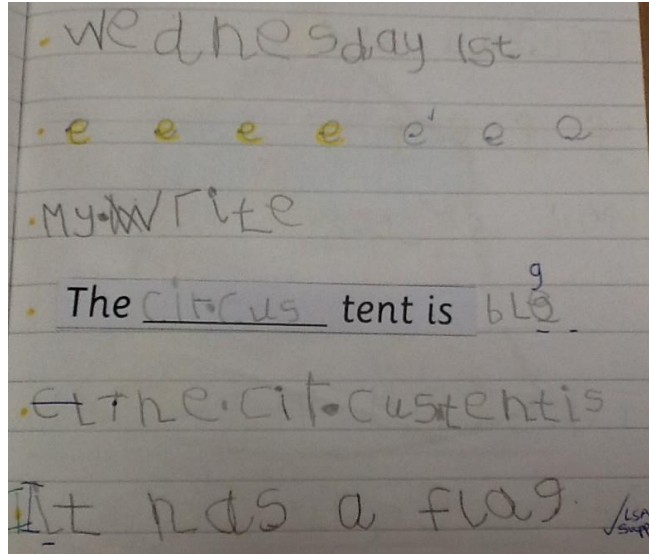 Wednesday 1st
e e e e e e e
My Write
g
The circus tent is big
the.cir.custentis
It has a flag.
LSA